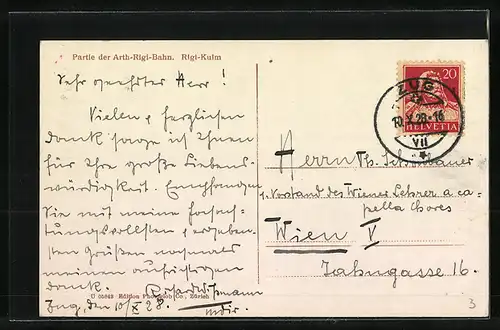 Partie der Arth-Rigi-Bahn. Rigi-Kulm
Sehr geehrter Herr!
Vielen, herzlichen
dank sage ich Ihnen
für Ihre große Liebens-
würdigkeit. Empfangen
Sie mit meine hochach-
tungsvollsten, ergeben-
sten Grüßen nochmals
meinen aufrichtigen
dank.
Zug, den 10/X 28.
U Edition Photoglob Co., Zürich
20
HELVETIA
ZUG
10.X.28
VII
Herrn Th.
Vorstand des Wiener Lehrer a ca-
pella Chores
Wien V
Jahngasse 16.
3